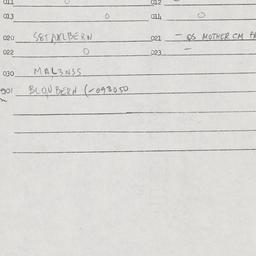 011 0 012
013 0 014 0
020 SGTAXLBERN 021 - QS MOTHER CM
022 0 023 -
030 MAL3NSS
901 BLQNBERN (-093050